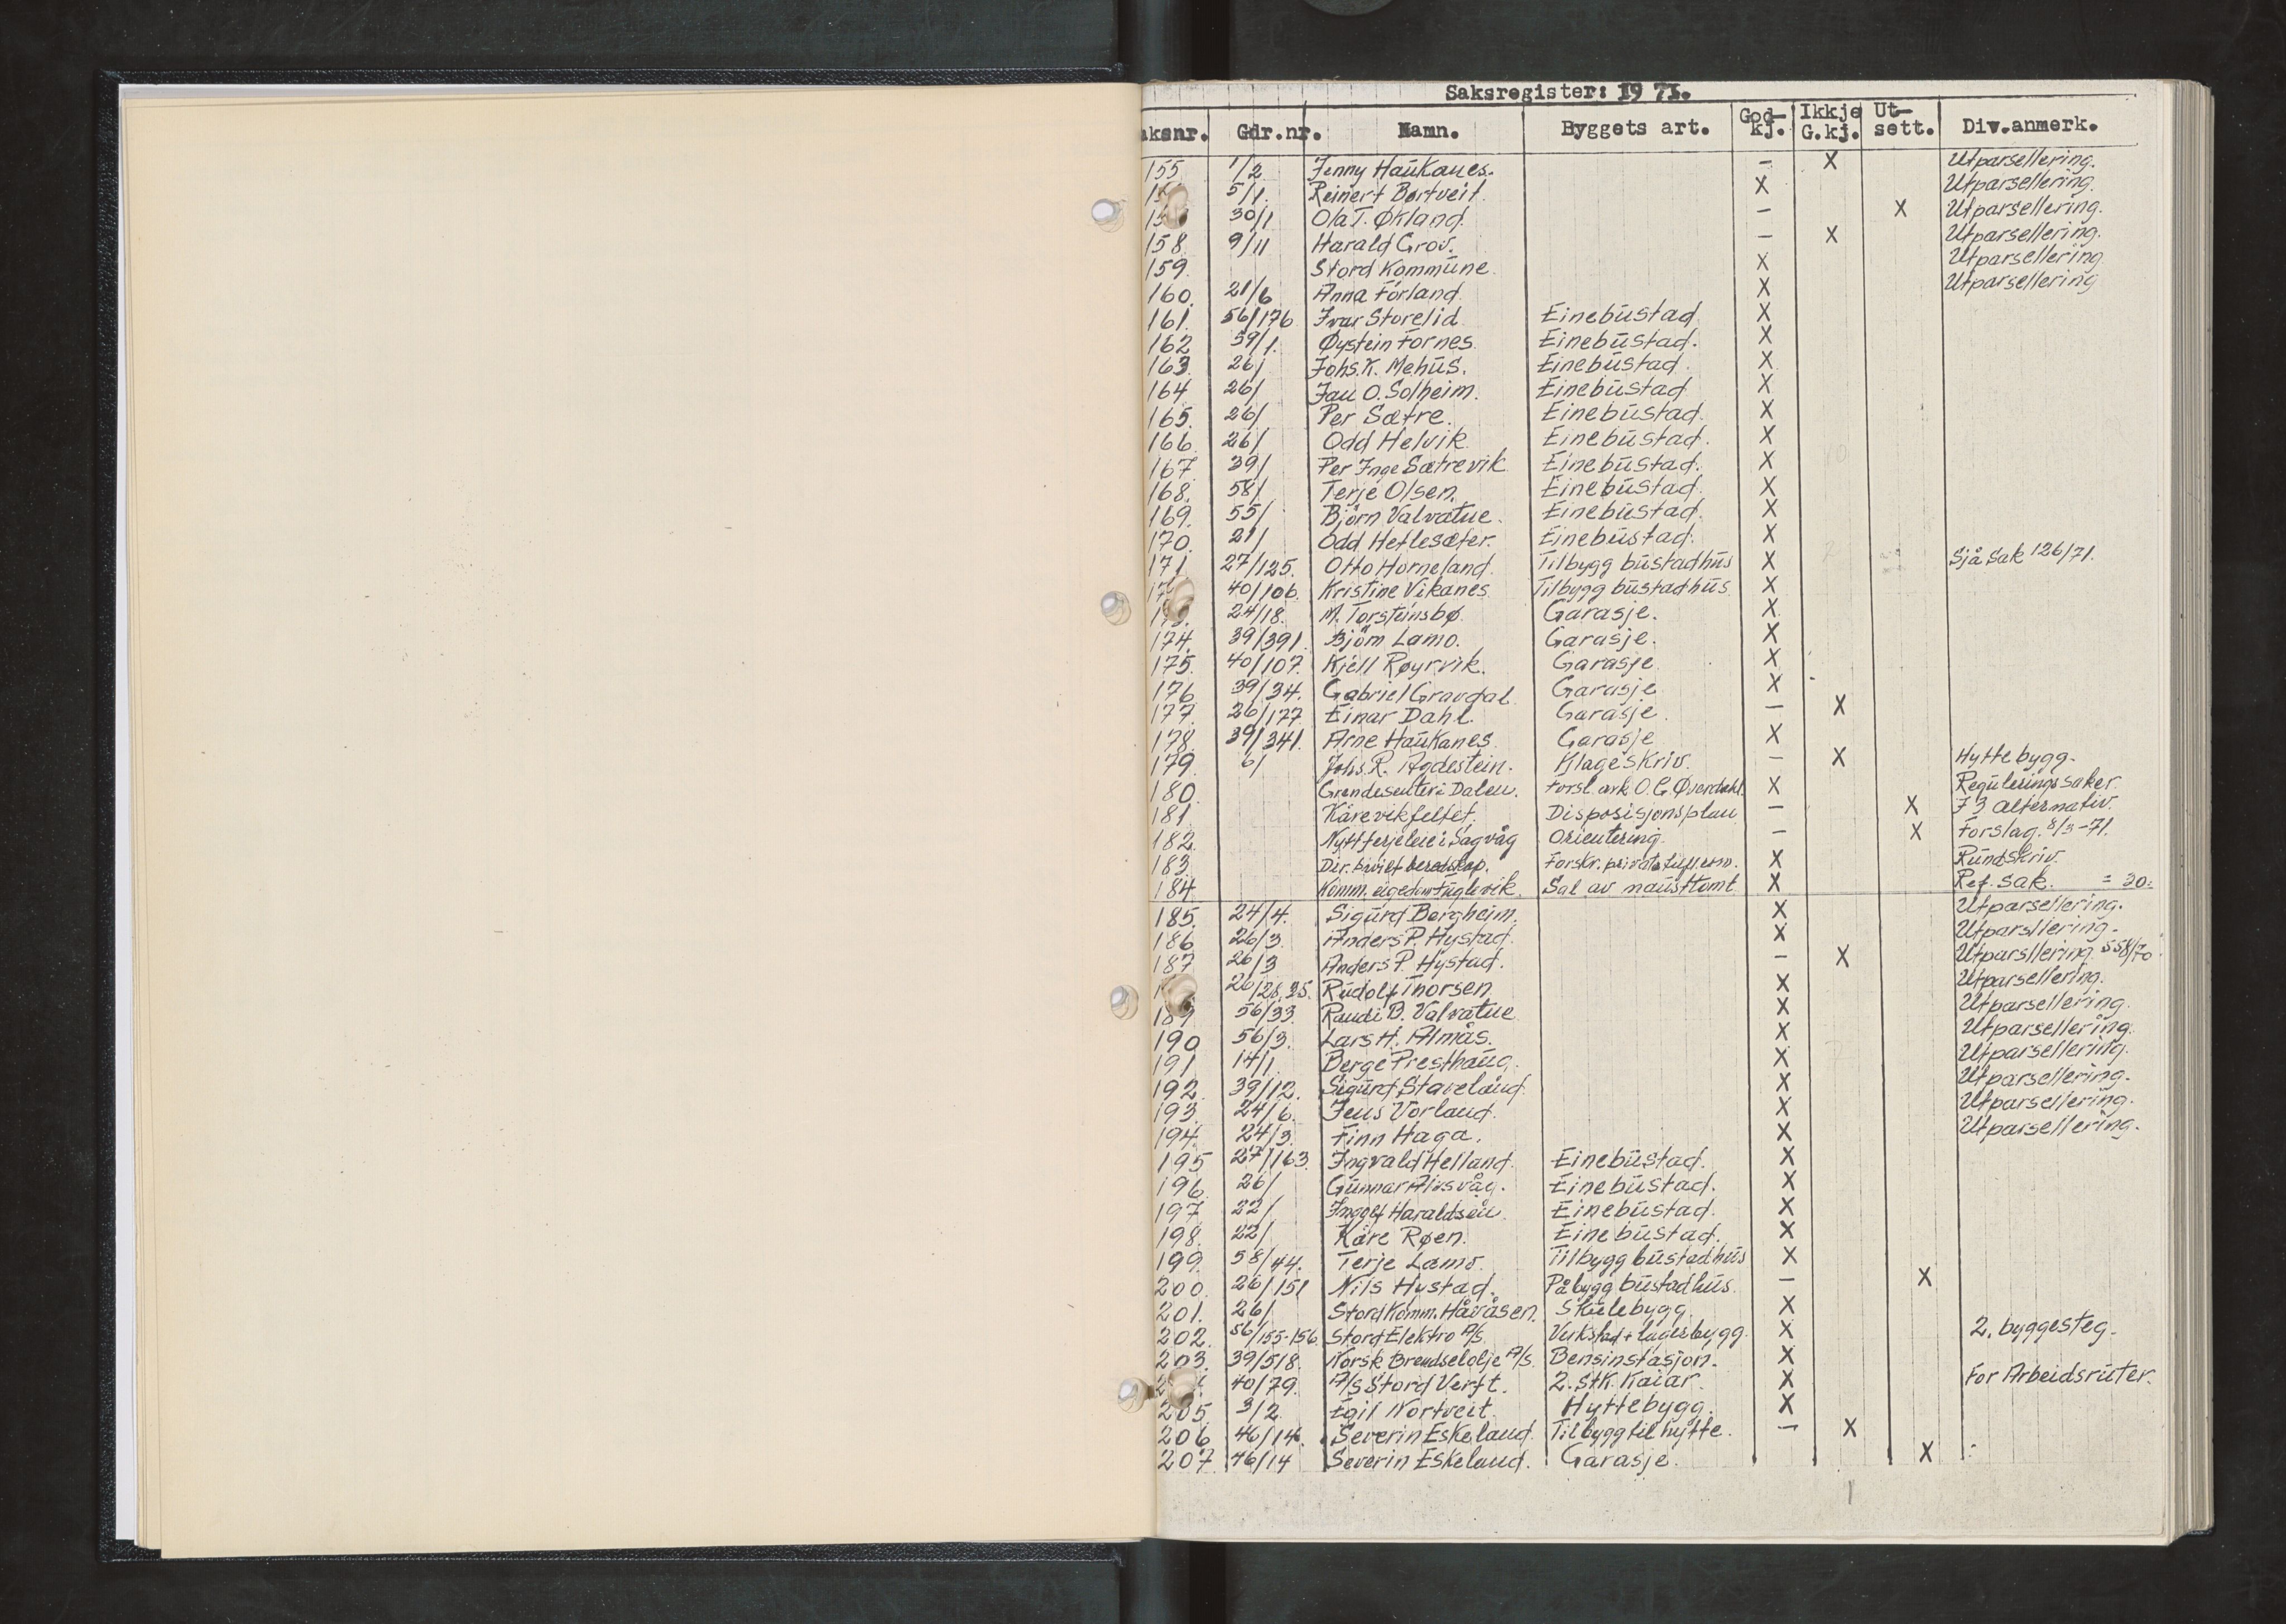 Saksregister: 1971.
aksnr. Gdr.nr. Namn. Byggets art. God-kj. Ikkje G.kj. Ut-sett. Div.anmerk.
155 1/2 Jenny Haukanes. - X Utparsellering.
5/1. Reinert Børtveit. X Utparsellering.
30/1 Ola T. Økland. - X Utparsellering.
158 9/11 Harald Grov. - X Utparsellering.
159. Stord Kommune. X Utparsellering
160. 21/6 Anna Førland. X Utparsellering
161. 56/176 Ivar Storelid Einebustad X
162 39/1. Øystein Fornes. Einebustad. X
163. 26/ Johs. K. Mehus. Einebustad. X
164 26/ Jan O. Solheim. Einebustad X
165. 26/ Per Sætre. Einebustad. X
166. 26/ Odd Helvik. Einebustad. X
167 39/ Per Inge Sætrevik Einebustad. X
168. 58/ Terje Olsen. Einebustad. X
169. 55/ Bjørn Valvatne. Einebustad. X
170. 21/ Odd Hetlesæter. Einebustad. X
171 27/125. Otto Horneland. Tilbygg bustadhus X Sjå sak 126/71.
40/106. Kristine Vikanes. Tilbygg bustadhus X
24/18. M. Torsteinsbø. Garasje. X
174. 39/391. Bjørn Lamo. Garasje. X
175. 40/107. Kjell Røyrvik. Garasje. X
176 39/34. Gabriel Gravdal Garasje X
177. 26/177 Einar Dahl. Garasje. - X
178. 39/341. Arne Haukanes. Garasje X
179. 6/ Johs. R. Agdestein. Klageskriv. - X Hyttebygg.
180. Grendesenter i Dalen. Forsl. ark. O. G. Øverdahl. X Reguleringssaker.
181. Kårevikfeltet. Disposisjonsplan - X I 3 alternativ.
182. Nytt ferjeleie i Sagvåg Orientering. - X Forslag. 8/3-71.
183. Dir. sivilt beredskap. Forskr. private X Rundskriv.
184. Komm. eigedom Fuglevik. Sal av nausttomt X Ref. sak. = 30.
185. 24/4. Sigurd Bergheim. X Utparsellering.
186 26/3. Anders P. Hystad. X Utparsllering.
187 26/3 Anders P. Hystad. - X Utparsllering. 558/70
26/28,25. Rudolf Thorsen X Utparsellering.
189 56/33. Randi B. Valvatne X Utparsellering.
190 56/3. Lars H. Almås. X Utparsellering.
191 14/1. Berge Presthaug. X Utparsellering.
192. 39/12. Sigurd Staveland X Utparsellering.
193. 24/6. Jens Vorland. X Utparsellering.
194. 24/3. Finn Haga. X Utparsellering.
195 27/163. Ingvald Helland. Einebustad. X
196. 26/ Gunnar Alvsvåg. Einebustad. X
197 22/ Inggolf Haraldsen. Einebustad. X
198. 22/ Kåre Røen. Einebustad. X
199. 58/44. Terje Lamo. Tilbygg bustadhus X
200. 26/151 Nils Hystad. Påbygg bustadhus. - X
201. 26/ Stord Komm. Håvåsen. Skulebygg. X
202. 56/155-156. Stord Elektro A/S. Verkstad + lagerbygg. X 2. byggesteg.
203. 39/518. Norsk Brendselolje A/S. Bensinstasjon. X
40/79. A/S Stord Verft. 2. stk. Kaiar. X For Arbeidsruter.
205. 3/2. Egil Nortveit. Hyttebygg. X
206 46/14. Severin Eskeland. Tilbygg til hytte. - X
207. 46/14 Severin Eskeland. Garasje. X